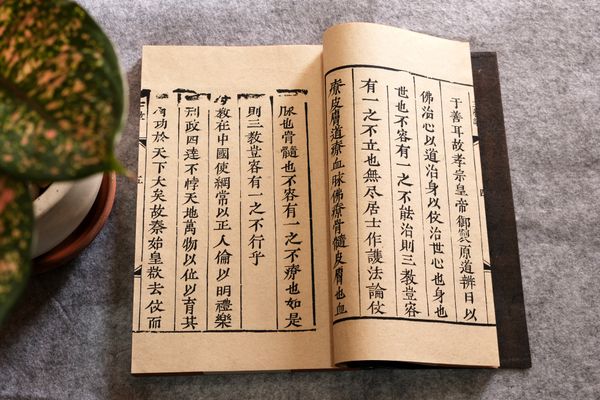 于善耳故孝宗皇帝御製原道辨曰以
佛治心以道治身以伩治世心也身也
世也不容有一之不能治則三教豈容
有一之不立也無尽居士作護法論伩
療皮膚道療血脉佛療骨髓皮膚也血
脉也骨髓也不容有一之不療也如是
則三教豈容有一之不行乎
教在中國使綱常以正人倫以明禮樂
刑政四達不悖天地萬物以位以育其
有功於天下大矣故秦始皇欲去伩而